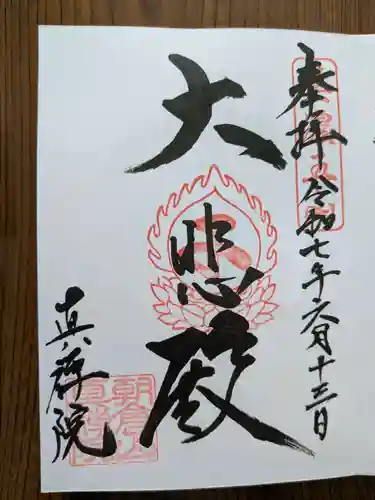 奉拝 令和七年六月十三日
大悲殿
真禅院